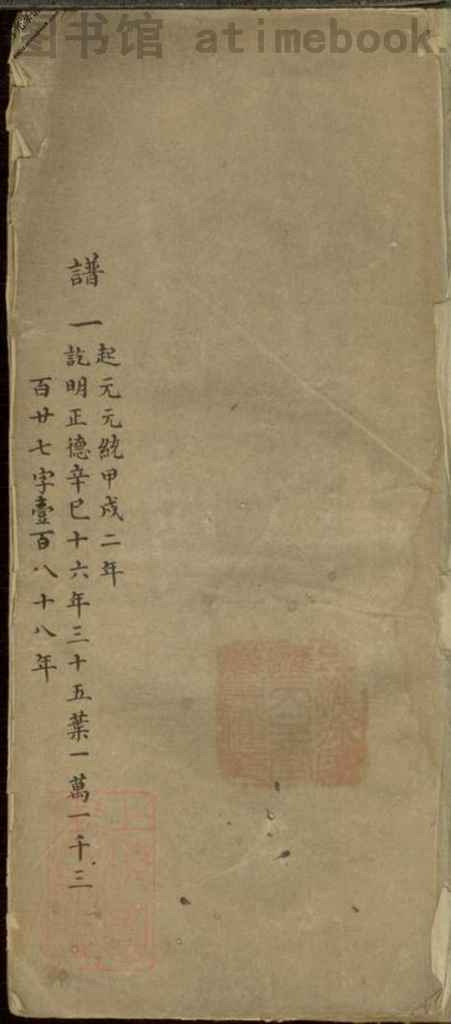 图书馆 atimebook.
譜一
起元元統甲戌二年
訖明正德辛巳十六年三十五葉一萬一千三
百廿七字壹百八十八年